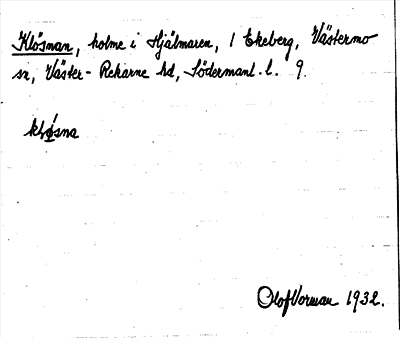 Klösnan, holme i Hjälmaren, 1 Ekeberg, Västermo
sn, Väster-Rekarne hd, Södermanl. l. 9.
Olof Vorman 1932.